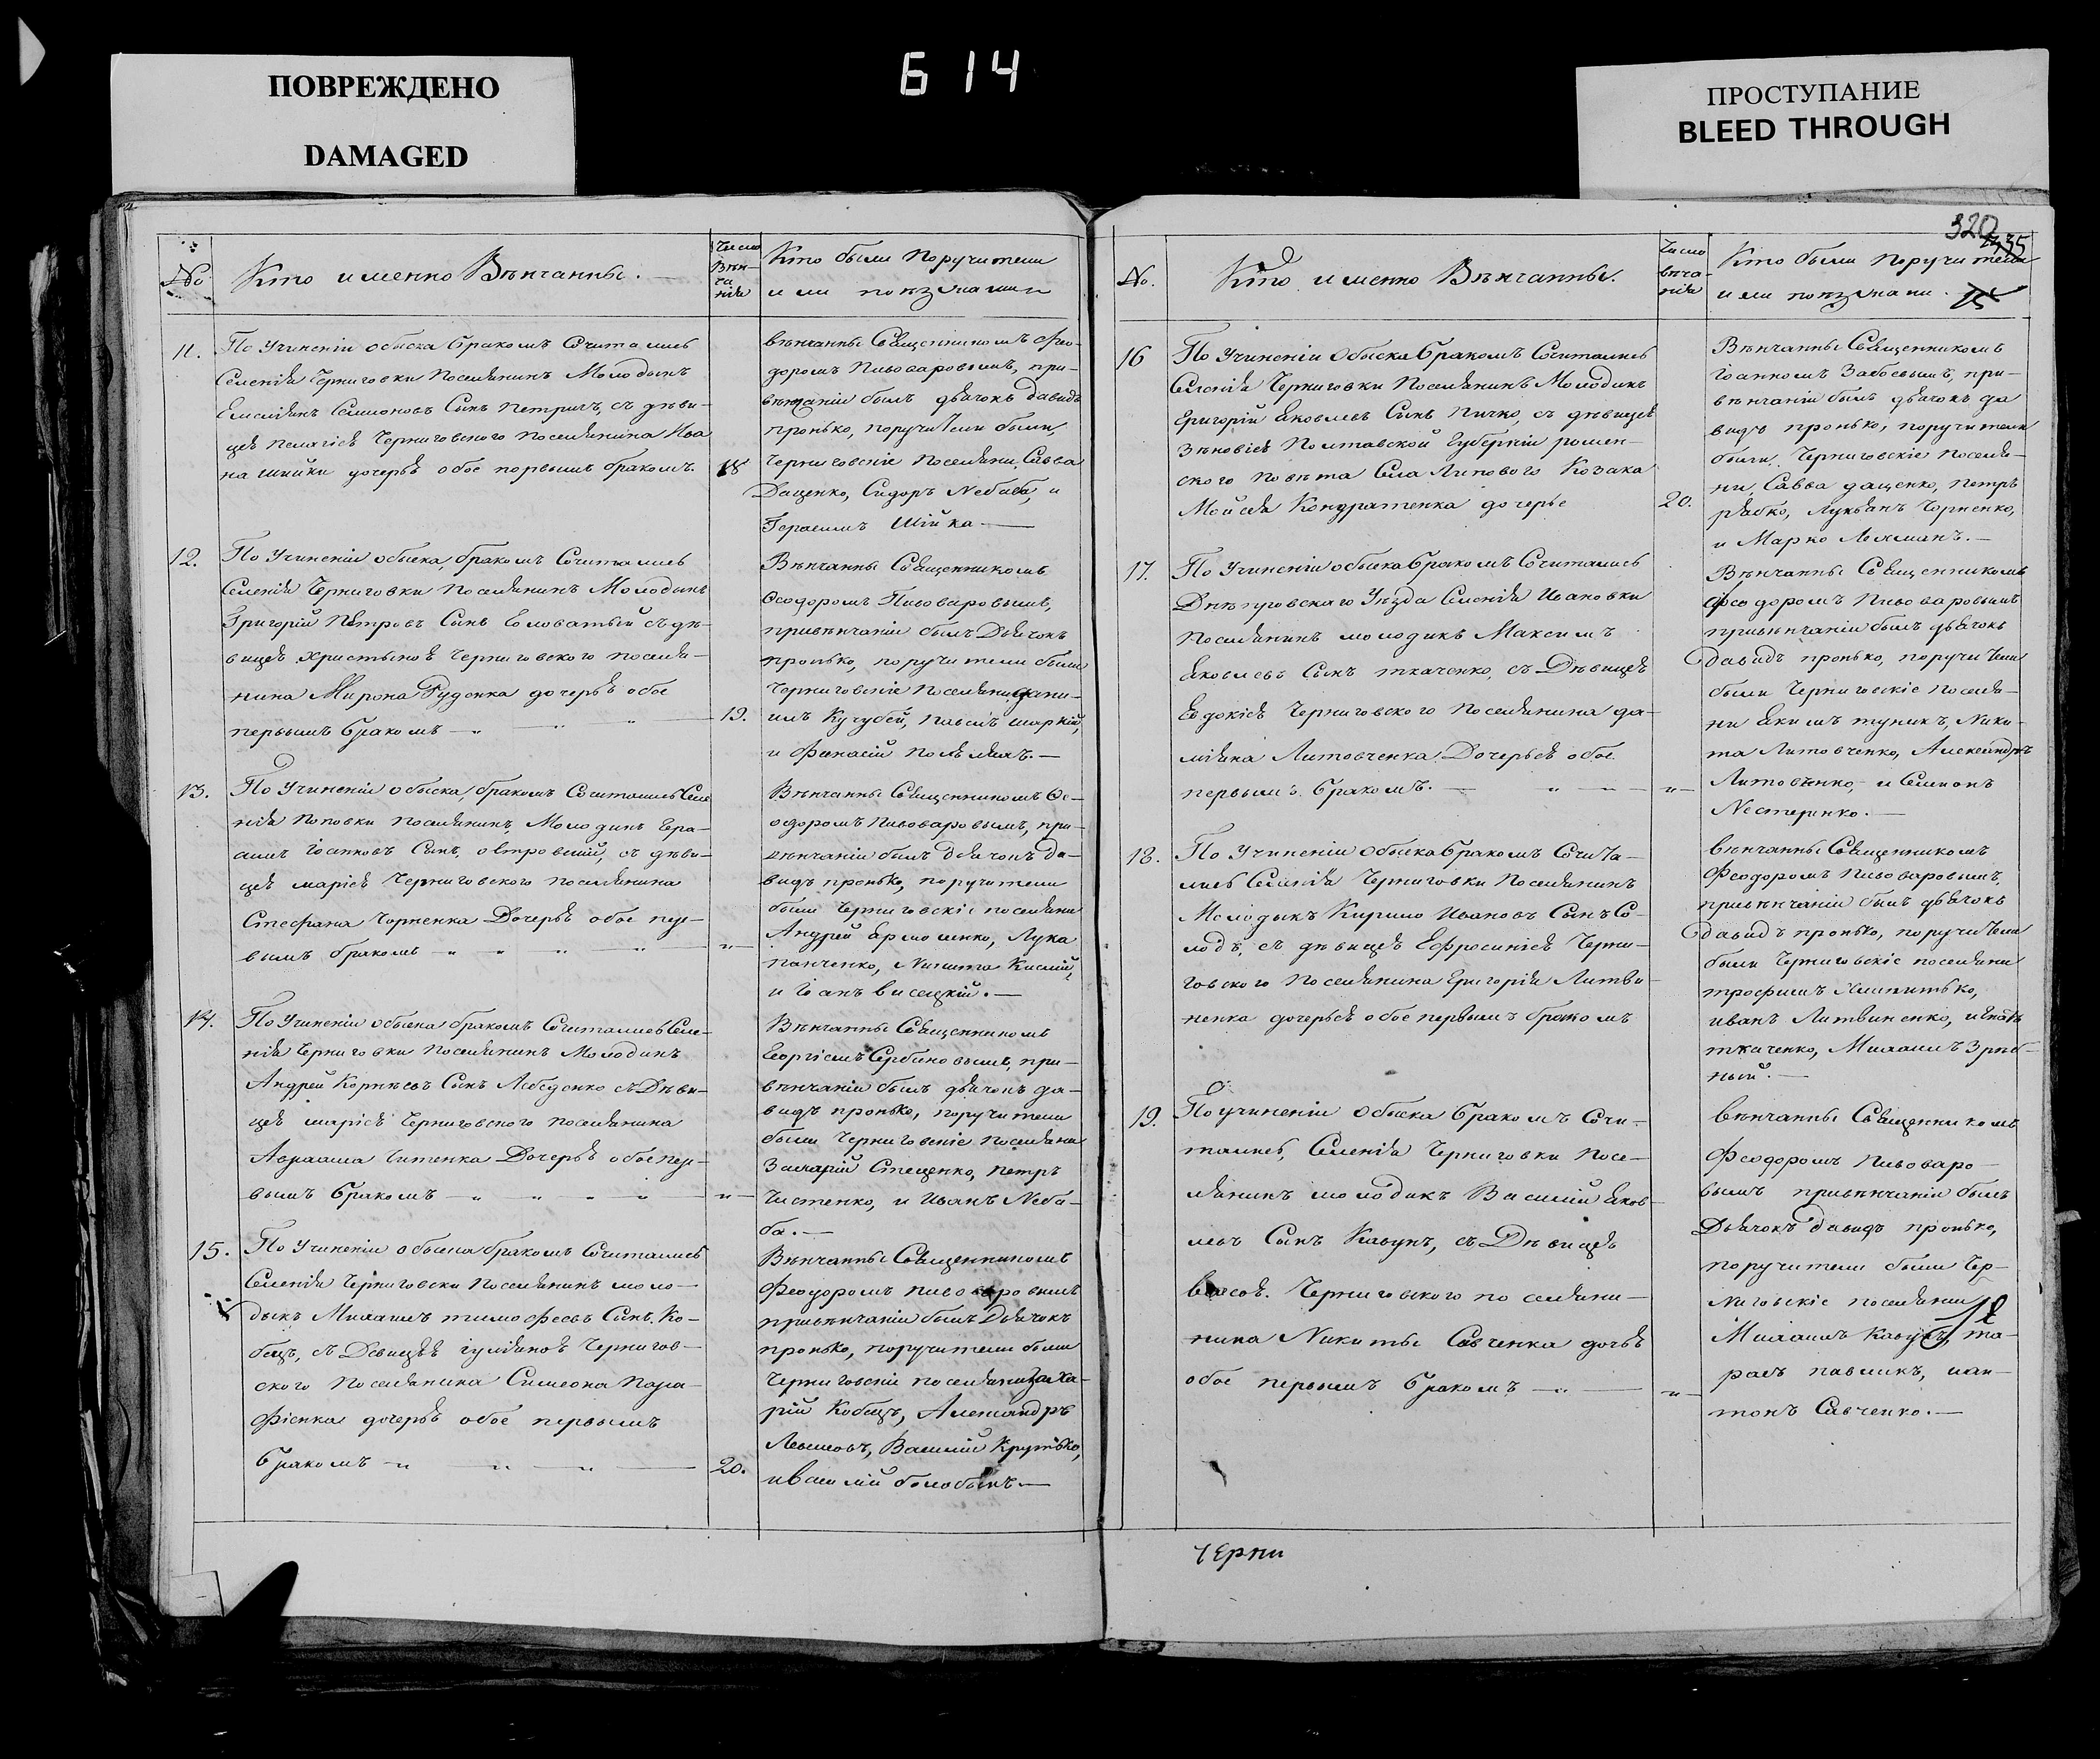 Б 14
ПОВРЕЖДЕНО
DAMAGED
ПРОСТУПАНИЕ
BLEED THROUGH
№
Кто именно Вѣнчанны.
Число
Вѣн-
ча
нія
Кто были поручители
11.
По учиненіи обыска бракомъ сочитались
Селенія Черниговки Поселянинъ Молодыкъ
Емелянъ Семионовъ Сынъ Петричъ, съ дѣви-
цеѣ Пелагіеѣ Черниговского поселянина Ива
на Шийки дочерьѣ обое первымъ бракомъ.
18
вѣнчанны Священникомъ Фео-
доромъ Пивоваровымъ, при-
вѣнчаніи былъ дьячокъ давидъ
пронько, поручители были,
Черниговскіе поселяни, Савва
Даценко, Сидоръ Небаба, и
Герасимъ Шійка.—
12.
По Учиненіи обыска, бракомъ Сочитались
Селенія Черниговки поселянинъ Молодыкъ
Григорій Петровъ Сынъ Головатый съ дѣ-
вицеѣ Христыноѣ Черниговского поселя-
нина Мирона Руденка дочерьѣ обое
первымъ бракомъ — „ — „ — „ —
19.
Вѣнчанны Священникомъ
Ѳеодоромъ Пивоваровымъ,
привѣнчаніи былъ Дьячокъ
пронько, поручители были
Черниговскіе поселяни, дани-
илъ Кучубей, павелъ шаркій,
и Фанасій Полѣ
13.
По Учиненіи обыска, бракомъ Сочитались Селе
нія Поповки поселянинъ, Молодикъ Гера-
симъ Іоанновъ Сынъ, островскій, съ дѣви-
цеѣ маріеѣ Черниговского поселянина
Стефана Чорненка Дочерьѣ обое пер-
вымъ бракомъ — „ — „ — „ — „ —
„
Вѣнчанны Священникомъ Ѳе-
одоромъ Пивоваровымъ, при-
вѣнчаніи былъ Дьячокъ Да-
видъ пронько, поручители
были Черниговскіе поселяни
Андрей Ермоленко, Лука
панченко, Никита Кислій,
и Іоанъ висоцкій.—
14.
По Учиненіи обыска бракомъ Сочитались Селе-
нія Черниговки поселянинъ Молодикъ
Андрей Корнѣевъ Сынъ Лебеденко съ Дѣви-
цеѣ маріеѣ Черниговского поселянина
Авраама Читенка Дочерьѣ обое пер-
вымъ бракомъ — „ — „ — „ — „ —
„
Вѣнчанны Священникомъ
Георгіемъ Сербиновымъ, при-
вѣнчаніи былъ дьячокъ да-
видъ пронько, поручители
были Черниговскіе поселяни
Захарій Стеценко, петръ
Чистенко, и Иванъ Неба-
ба.—
15.
По Учиненіи обыска бракомъ Сочитались
Селенія Черниговки поселянинъ моло-
дыкъ Михаилъ тимофеевъ Сынъ, Ко-
бецъ, съ Девицѣѣ гулияноѣ Чернигов-
ского поселянина Симеона Пара-
фіенка дочерьѣ обое первымъ
бракомъ — „ — „ — „ —
20.
Вѣнчанны Священникомъ
Феодоромъ пивоваровымъ
привѣнчаніи былъ Дьячокъ
пронько, поручители были
Черниговскіе поселяни, Заха-
рій Кобецъ, Александръ
Василій Крутько,
и Василій
320
№.
Кто именно Вѣнчанны.
Число
вѣнча-
нія
Кто были поручители
15
16
По Учиненіи Обыска бракомъ Сочитались
Селенія Черниговки поселянинъ Молодикъ
Григорій Яковлевъ Сынъ Пичко, съ дѣвицеѣ
Зѣновіеѣ Полтавской Губерніи ромен-
ского повѣта Села Липового Козака
Мойсея Кондратенка дочерье
20.
Вѣнчанны Священникомъ
Іоанномъ Забоевымъ, при-
вѣнчаніи былъ дьячокъ да
видъ пронько, поручители
были, Черниговскіе поселя-
ни, Савва даценко, петръ
рябко, Лукьанъ Чорненко,
и Марко Лехманъ.—
17.
По Учиненіи обыска бракомъ Сочитались
Днѣпровского Уѣзда Селенія Ивановки
поселянинъ молодикъ Максимъ
Яковлевъ Сынъ ткаченко, съ Дѣвицеѣ
Евдокіеѣ Черниговского поселянина да-
міяна Литовченка, Дочерьеѣ обое
первымъ бракомъ. — „ — „ —
„
Вѣнчанны Священникомъ
Феодоромъ Пивоваровымъ
привѣнчаніи былъ дьячокъ
давидъ пронько, поручители
были Черниговскіе поселя-
ни Екимъ туникъ, Ники-
та Литовченко, Александръ
Литовченко, и Семионъ
Нестеренко.—
18.
По Учиненіи обыска бракомъ Сочита-
лись Селенія Черниговки поселянинъ
Молодыкъ Кирило Ивановъ Сынъ Со-
лодъ, съ дѣвицеѣ Ефросиніеѣ Черни-
говского поселянина Григорія Литви-
ненка дочерьеѣ обое первымъ бракомъ
вѣнчанны Священникомъ
Феодоромъ Пивоваровымъ,
привѣнчаніи былъ дьячокъ
давидъ пронько, поручители
были Черниговскіе поселяни
трофимъ
иванъ Литвиненко,
ткаченко, Михаилъ
ный.—
19.
По учиненіи обыска бракомъ Сочи-
тались, Селенія Черниговки Посе-
лянинъ молодикъ Василій Яков-
левъ Сынъ Кавунъ, съ Дѣвицеѣ
Черниговского поселяни-
нина Никиты Савченка дочьѣ
обое первымъ бракомъ — „ —
„
вѣнчанны Священникомъ
Феодоромъ Пивоваро-
вымъ привѣнчаніи былъ
Дьячокъ давидъ пронько,
поручители были Чер-
ниговскіе поселяни
Михаилъ Кавунъ, та-
расъ павликъ, иан-
тонъ Савченко.—
Черни